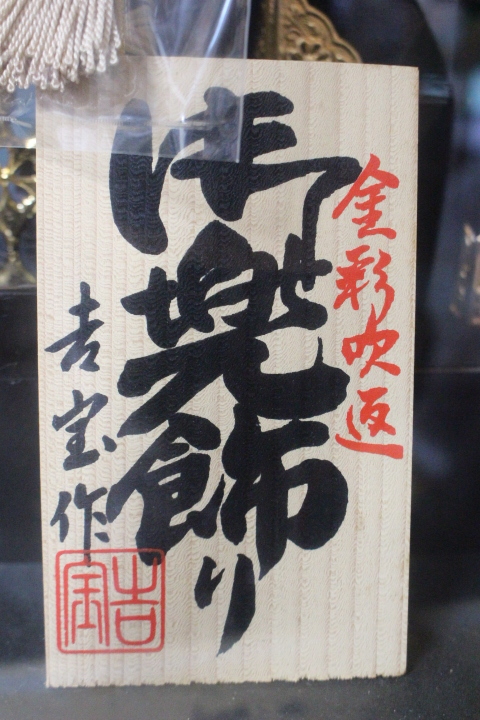 金彩吹返
御兜飾り
吉宝作
吉宝